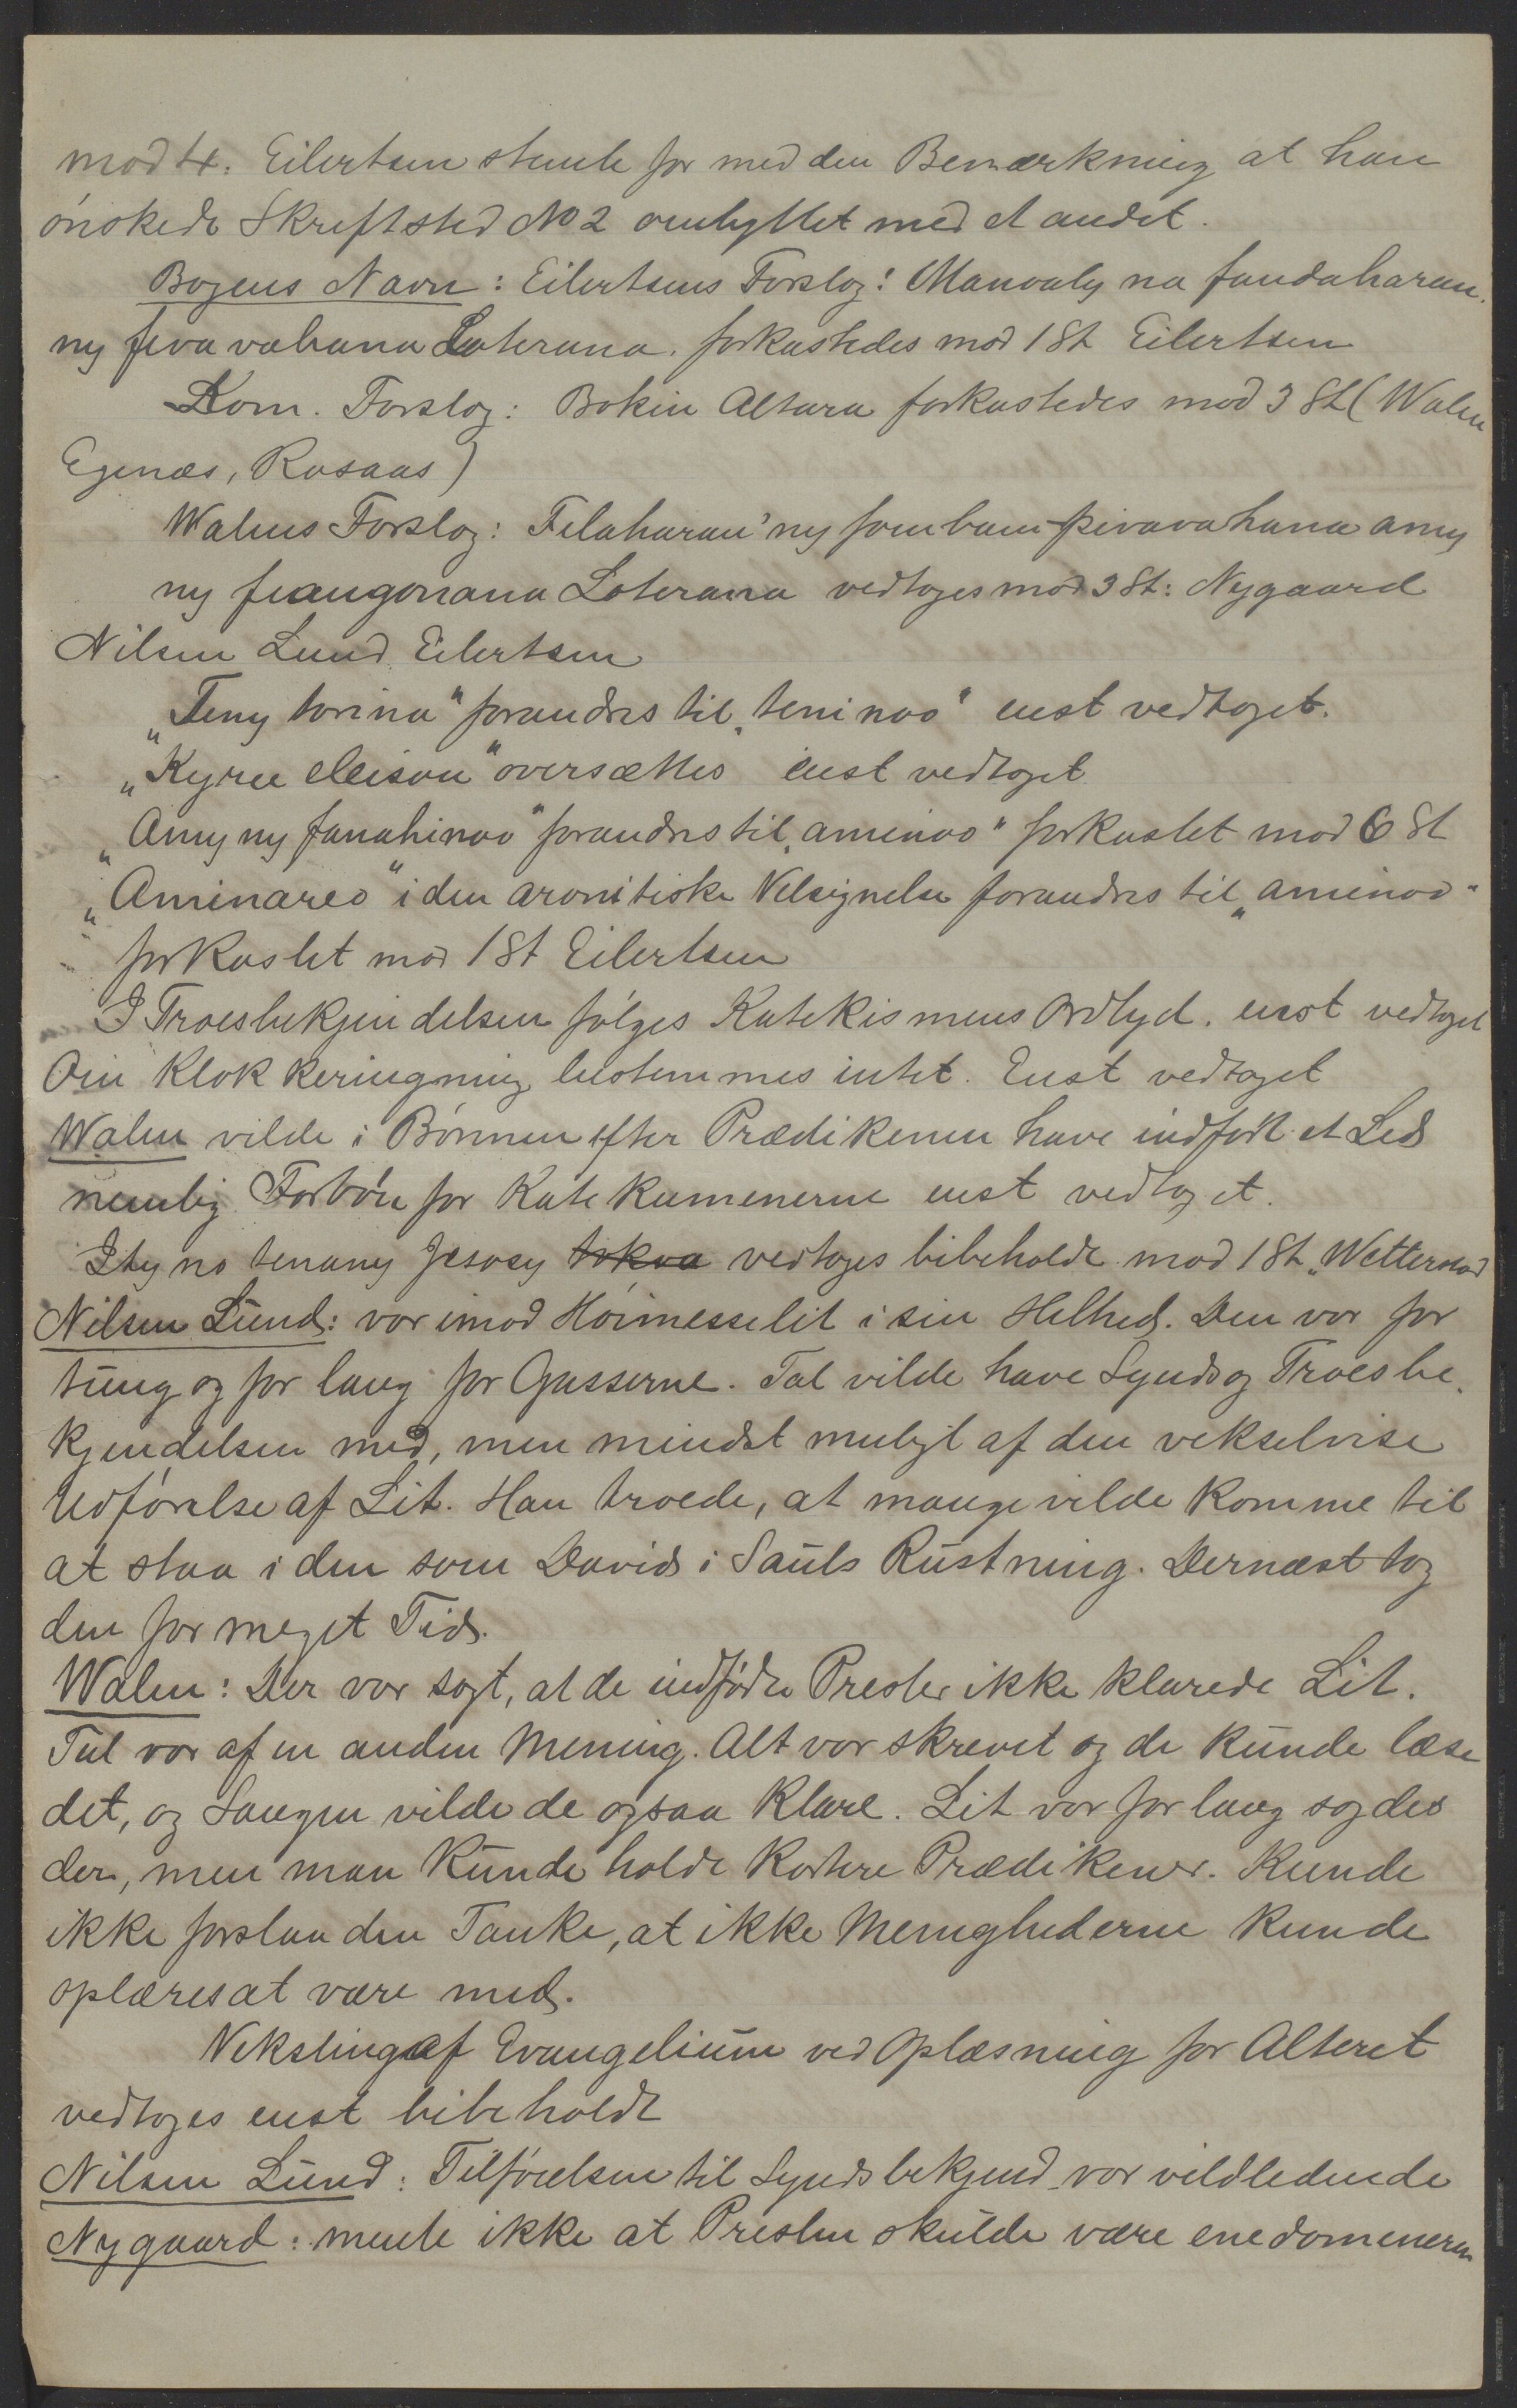 mod 4. Eilertsen stemte for med den Bemærkning at han
ønskede Skriftsted No 2 ombyttet med et andet.
Bogens Navn: Eilertsens Forslog: Manoaly na fandaharan
ny fiva vahana Loterana. forkastedes mod 1 St Eilertsen
Kom. Forslog: Bokin Altara forkastedes mod 3 St (Walen
Egenæs, Rosaas)
Walens Forslog: Filaharan' ny fombam-pivavahana amy
ny fiangonana Loterana vedtoges mod 3 St: Nygaard
Nilsen Lund Eilertsen
„Teny torina" forandres til „teninao" enst vedtoget.
„Kyrie eleison" oversættes enst vedtoget
„Amy ny fanahinao" forandres til „aminao" forkastet mod 6 St
„Aminareo" i den aronitiske Velsignelse forandres til „aminao"
forkastet mod 1 St Eilertsen
I Troesbekjendelsen følges Katekismens Ordlyd. enst vedtoget
Om Klokkeringning bestemmes intet. Enst vedtoget
Walen vilde i Bønnen efter Prædikenen have indført et Led
nemlig Forbøn for Katekumenerne enst vedtoget.
Ity no tenany Jesosy tokoa vedtoges bibeholdt mod 1 St. Wetterstad
Nilsen Lund: var imod Høimesselit i sin Helhed. Den var for
tung og for lang for Gasserne. Tal vilde have Synds og Troesbe-
kjendelsen med, men mindst muligt af den vekselvise
Udførelse af Lit. Han troede, at mange vilde komme til
at staa i den som David i Sauls Rustning. Dernæst tog
den for meget Tid.
Walen: Der var sagt, at de indfødte Prester ikke klarede Lit.
Tal var af en anden Mening. Alt var skrevet og de kunde læse
det, og Sangen vilde de ogsaa klare. Lit var for lang sagdes
der, men man kunde holde kortere Prædikener. Kunde
ikke forstaa den Tanke, at ikke Menighederne kunde
oplæres at være med.
Veksling af Evangelium ved Oplæsning for Alteret
vedtoges enst bibeholdt
Nilsen Lund: Tilføielsen til Syndsbekjend. var vildledende
Nygaard: mente ikke at Presten skulde være enedomeneren